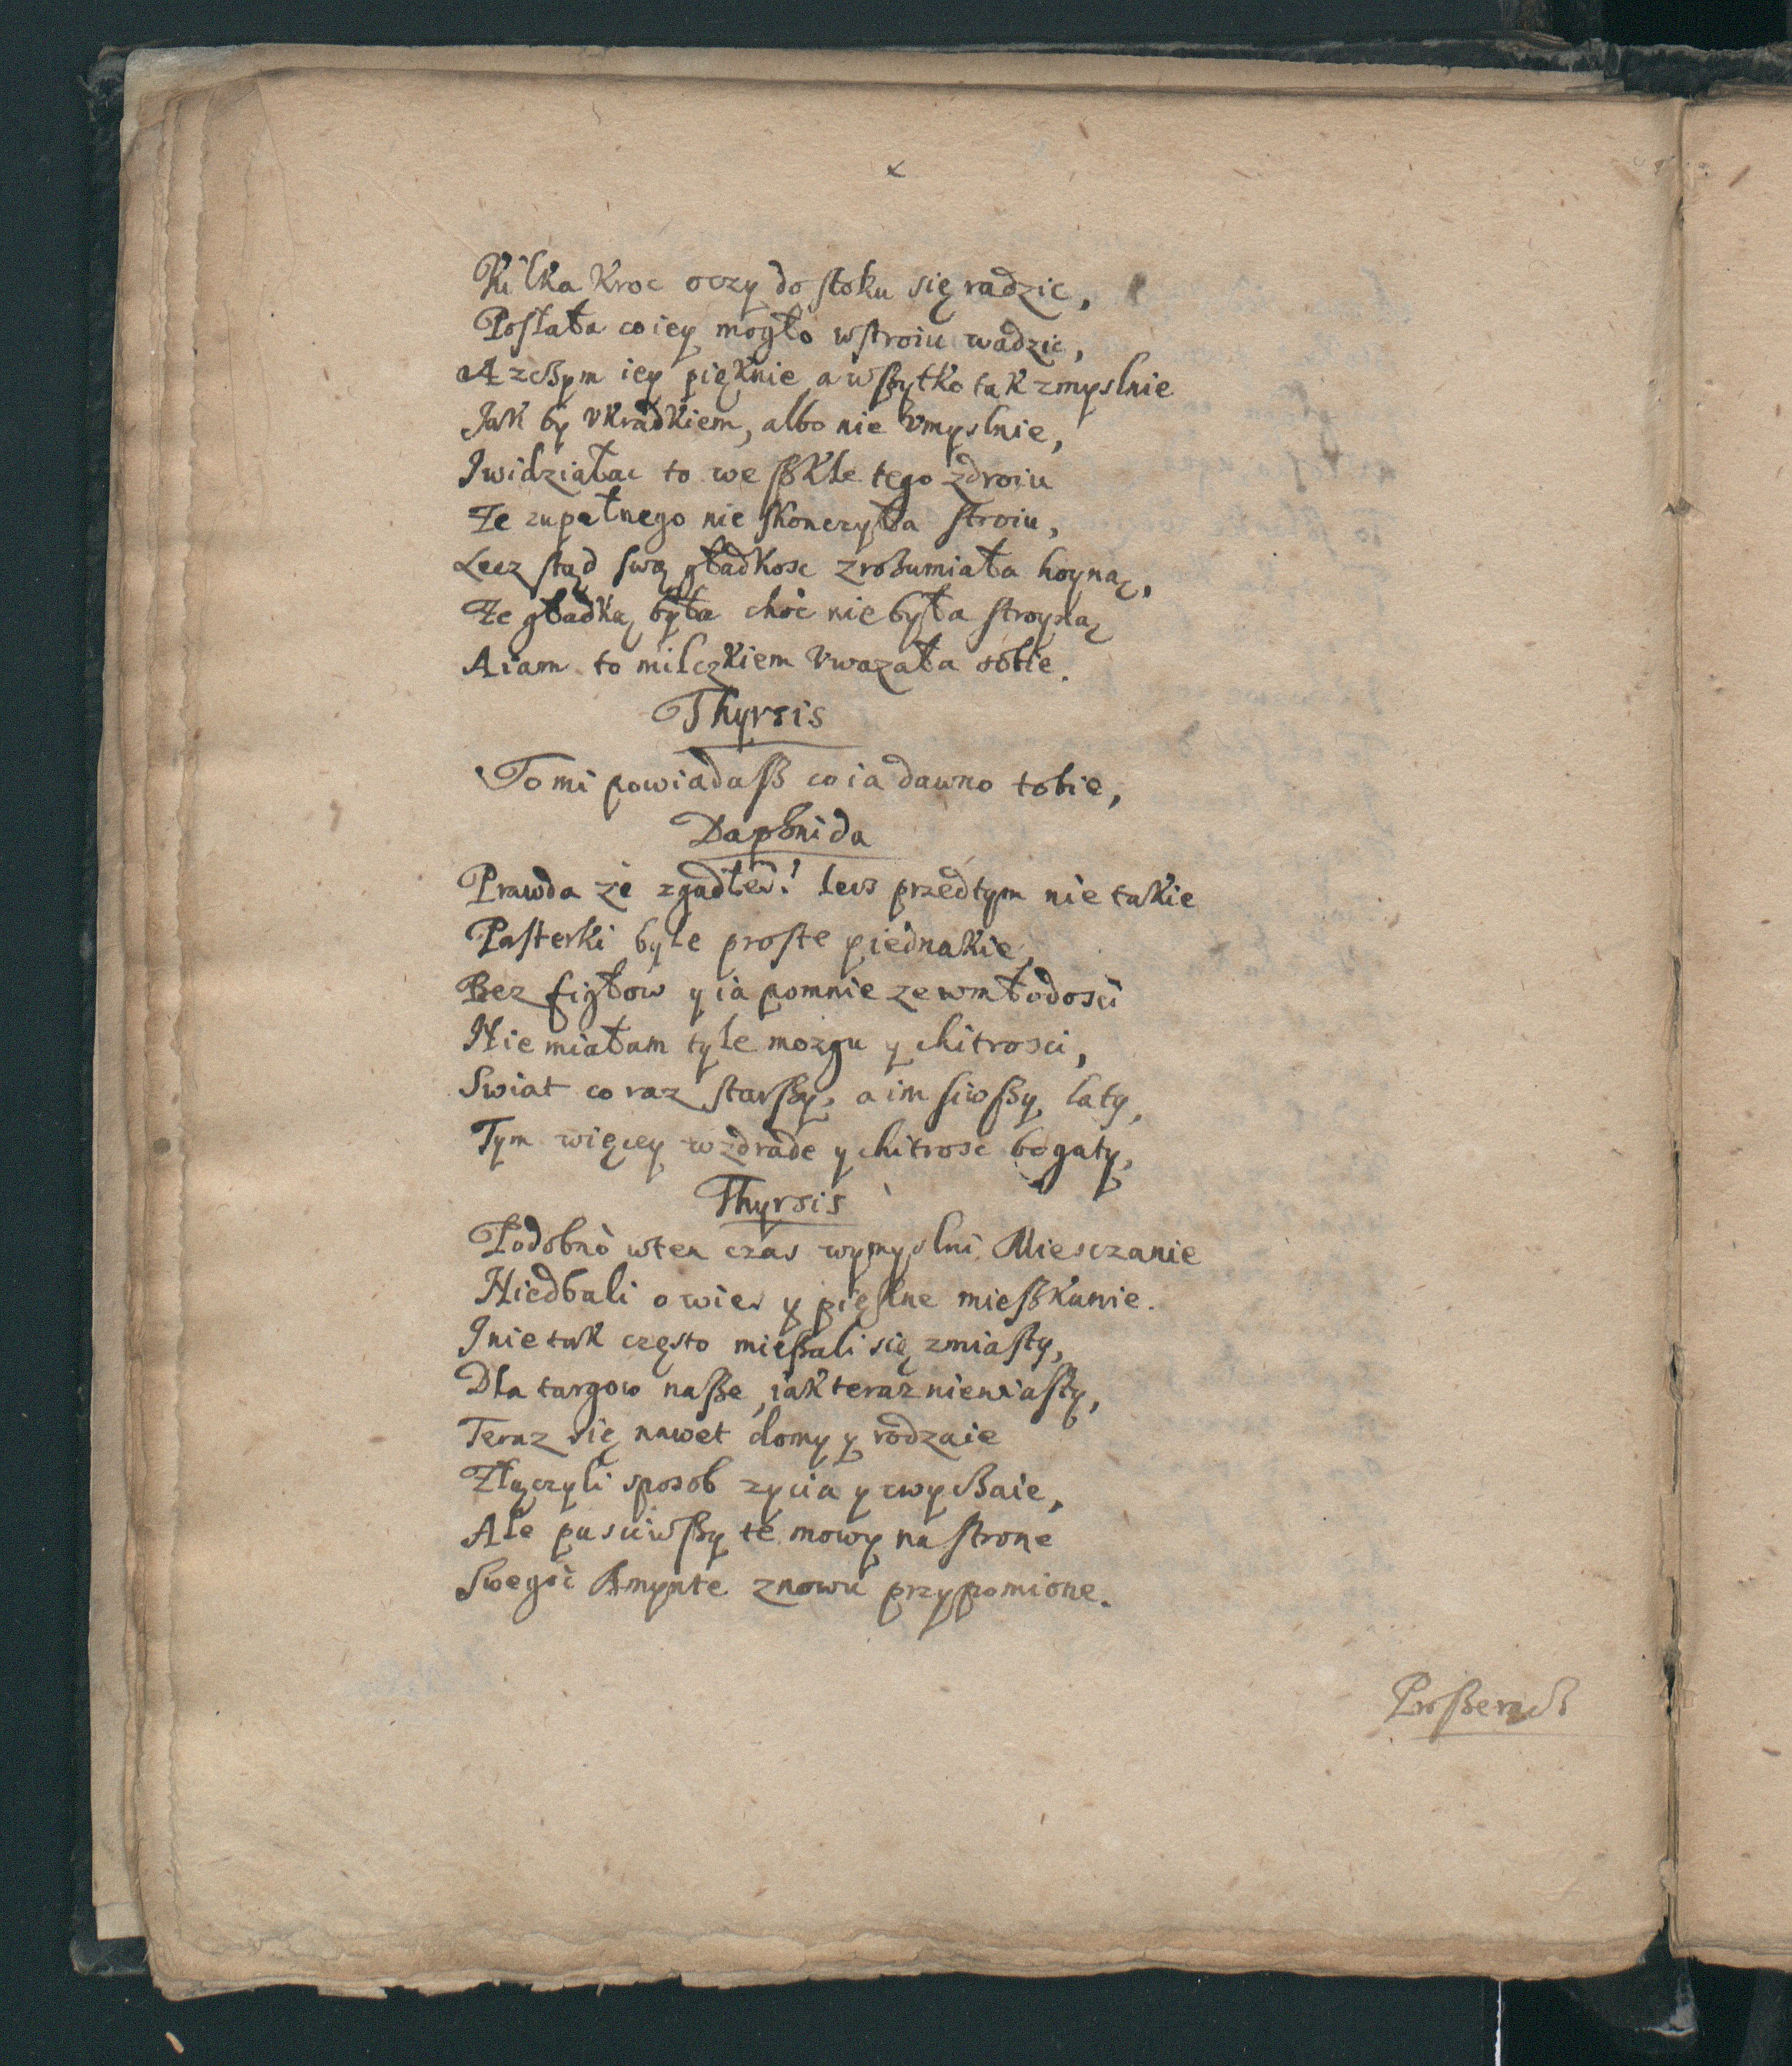 Kilka kroc oczy do stoku się radzic,
Posłała co iey mogło wstroiu wadzic,
A z czym iey pięknie a wszytko tak zmyslnie
Jak by vkradkiem, albo nie vmyslnie,
I widziałac to we szkle tego zdroiu
Ze zupełnego nie skonczyła stroiu,
Lecz stąd swą gładkosc zrozumiała hoyną,
Ze gładką była choc nie była stroyną
A iam to milczkiem vwazała sobie.
Thyrsis
To mi powiadasz co ia dawno tobie,
Daphnida
Prawda ze zgadłes! lecz przedtym nie takie
Pasterki byle proste y iednakie
Bez figłow y ia pomnie ze wmłodosci
Nie miałam tyle mozgu y chitrosci,
Swiat co raz starszy, a im siwszy laty,
Tym więcey wzdrade y chitrosc bogaty,
Thyrsis
Podobno wten czas wymyslni Miesczanie
Niedbali o wies y pięslne mieszkanie.
I nie tak często mieszali się zmiasty,
Dla targow nasze, iak teraz niewiasty,
Teraz się nawet domy y rodzaie
Złączyli sposob zycia y zwyczaie,
Ale pusciwszy te mowy na strone
Swegoć Amynte znowu przypomione.